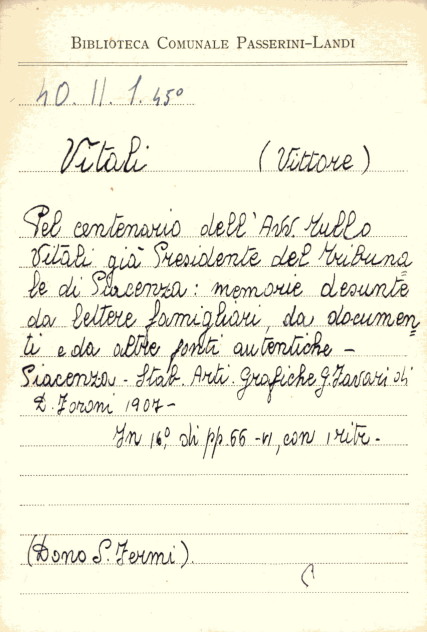 BIBLIOTECA COMUNALE PASSERINI-LANDI
40. II. 1. 45°
Vitali (Vittore)
Pel centenario dell'Avv. Tullo
Vitali già Presidente del Tribuna=
le di Piacenza: memorie desunte
da lettere famigliari, da documen=
ti e da altre fonti autentiche -
Piacenza - Stab. Arti. Grafiche G. Favari di
D. Foroni 1907 -
In 16° di pp. 66 - VI, con 1 ritr -
(Dono S. Fermi).